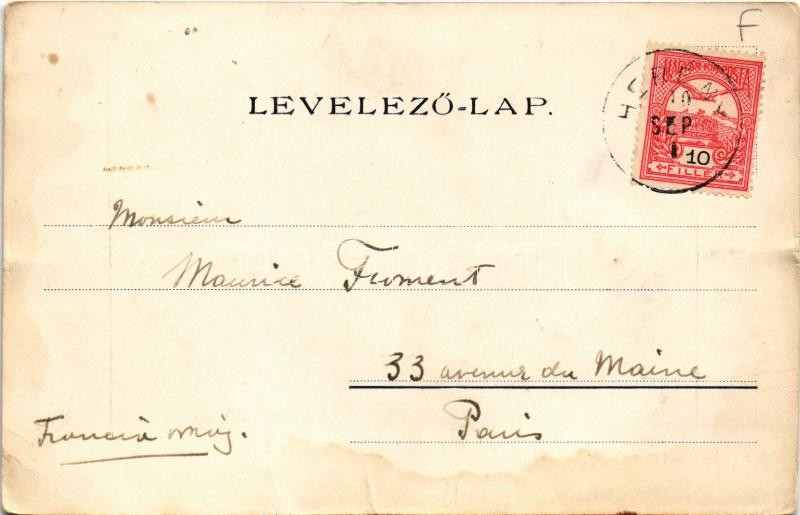 F
LEVELEZŐ-LAP.
MAGYAR KIR. POSTA
10
SEP
1
10
FILLÉR
Monsieur
Maurice Froment
33 avenue du Maine
Paris
Francia ország.